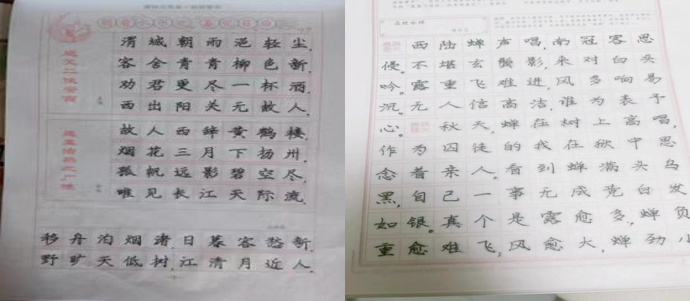 渭城朝雨浥轻尘,
客舍青青柳色新.
劝君更尽一杯酒,
西出阳关无故人.
故人西辞黄鹤楼,
烟花三月下扬州.
孤帆远影碧空尽,
唯见长江天际流.
移舟泊烟渚,日暮客愁新.
野旷天低树,江清月近人.
西陆蝉声唱,南冠客思
侵.不堪玄鬓影,来对白头
吟.露重飞难进,风多响易
沉.无人信高洁,谁为表予
心.秋天,蝉在树上高唱,
作为囚徒的我在狱中思
念着亲人.看到蝉满头乌
黑,自己一事无成竟白发
如银.真个是露愈多,蝉负
重愈难飞,风愈大,蝉劲小